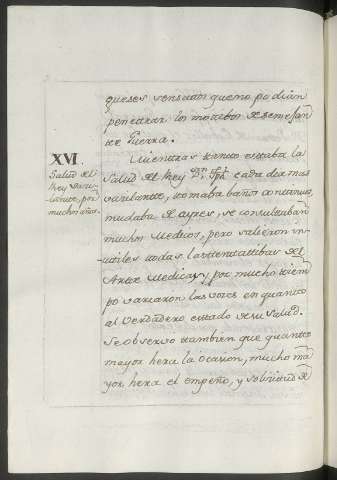 queses sensatos que no podian
penetrar los motibos de semejan
te Guerra.
XVI
Salud del
Rey vaci-
lante, por
muchos años.
Mientras tanto estaba la
Salud del Rey cada dia mas
vacilante, tomaba baños continuos,
mudaba de ayres, se consultaban
muchos Medicos, pero salieron in-
utiles todas las tentatibas del
Arte Medica, y por mucho tiem
po variaron las voces en quanto
al verdadero estado de su Salud.
Se observo tambien que quanto
mayor hera la ocasion, mucho ma
yor hera el empeño, y solicitud de